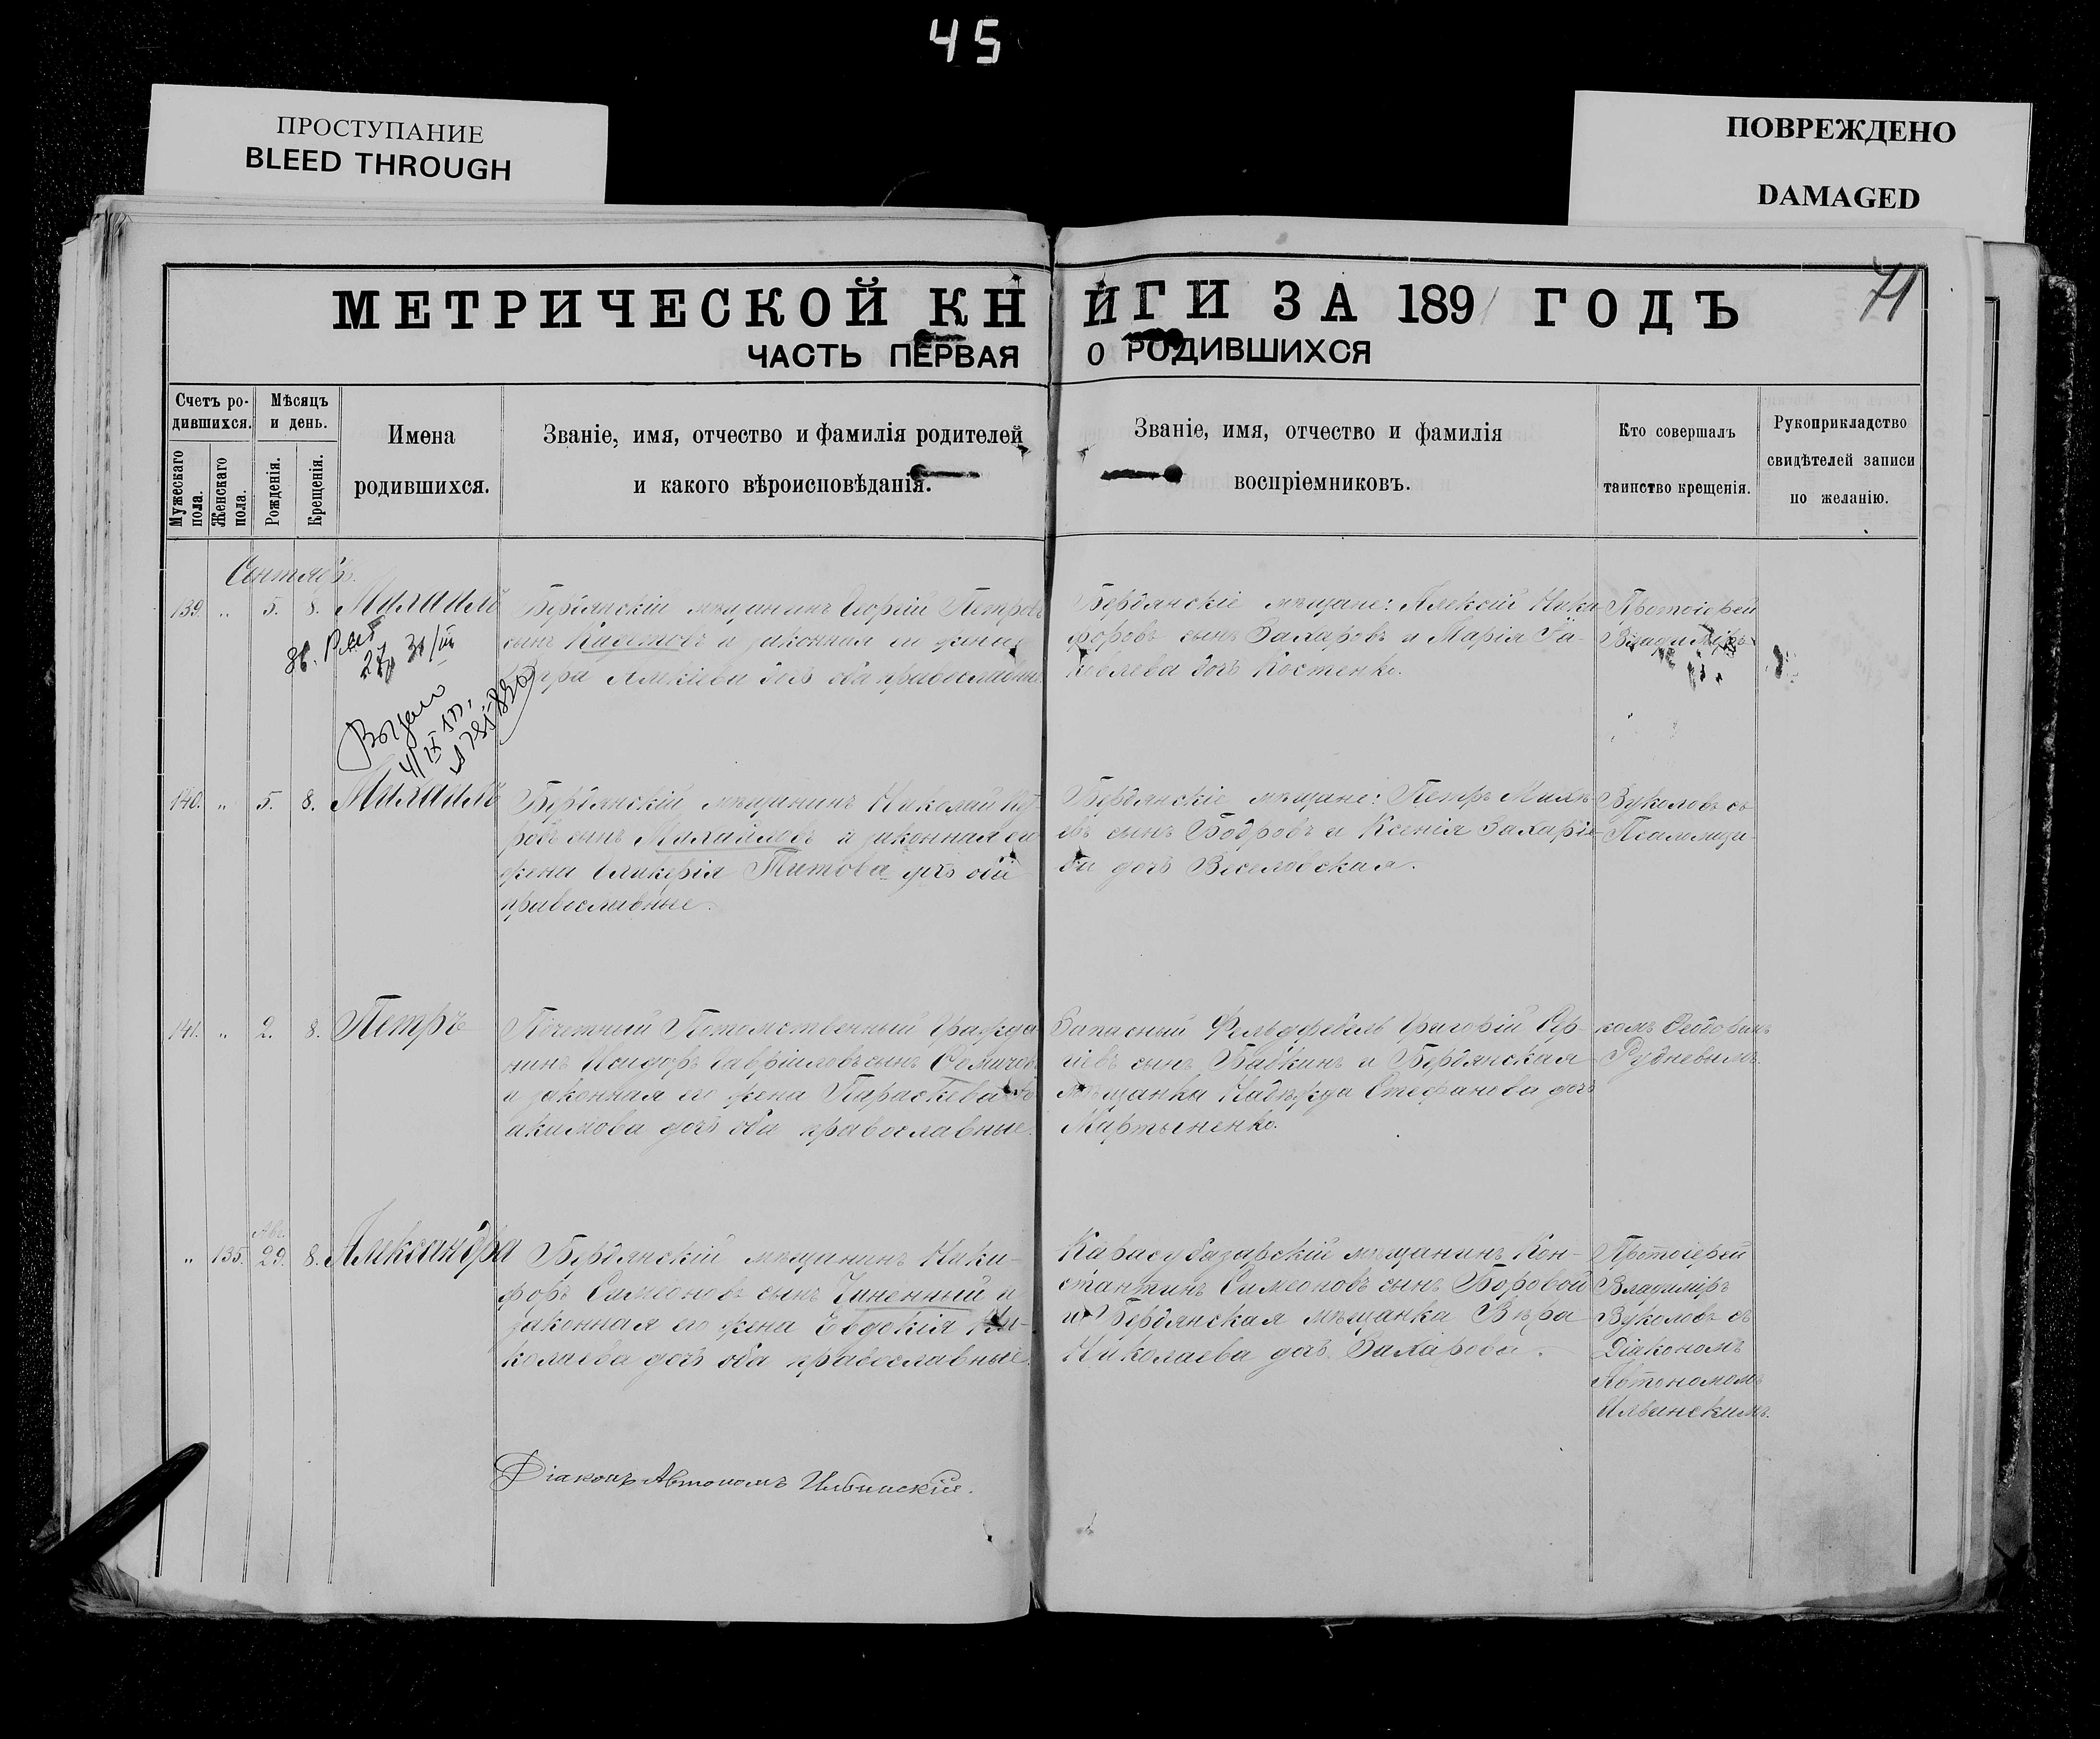 45
ПРОСТУПАНИЕ
BLEED THROUGH
ПОВРЕЖДЕНО
DAMAGED
71
МЕТРИЧЕСКОЙ КНИГИ ЗА 1891 ГОДЪ
ЧАСТЬ ПЕРВАЯ О РОДИВШИХСЯ
Счетъ ро-
дившихся.
Мужескаго пола.
Женскаго пола.
Мѣсяцъ
и день.
Рожденія.
Крещенія.
Имена
родившихся.
Званіе, имя, отчество и фамилія родителей
и какого вѣроисповѣданія.
Званіе, имя, отчество и фамилія
воспріемниковъ.
Кто совершалъ
таинство крещенія.
Рукоприкладство
свидѣтелей записи
по желанію.
Сентябрь.
139. „ 5. 8. Михаилъ
Бердянскій мѣщанинъ Георгій Петровъ
сынъ и законная его жена
дочь оба православные.
Бердянскіе мѣщане: Алексій Ники-
форовъ сынъ Захаровъ и Марія Іа-
ковлева дочь Костенко.
Протоіерей
Владиміръ
Выдано
140. „ 5. 8. Михаилъ
Бердянскій мѣщанинъ Николай
ровъ сынъ Михайловъ и законная его
жена Гликерія Титова дочь оба
православные.
Бердянскіе мѣщане: Петръ Михе-
евъ сынъ Бодровъ и Ксенія Захаріе-
ва дочь Веселовская.
Вуколовъ съ
Псаломщи-
141. „ 2. 8. Петръ
Почетный Потомственный Гражда-
нинъ Исидоръ Гавріиловъ сынъ
и законная его жена Параскева
акимова дочь оба православные.
Запасный Фельдфебель Григорій Сер-
гіевъ сынъ Бабкинъ и Бердянская
мѣщанка Надежда Стефанова дочь
Мартыненко.
комъ Феодоромъ
Рудневымъ.
„ 135. Авг. 29. 8. Александра
Бердянскій мѣщанинъ Ники-
форъ Симеоновъ сынъ и
законная его жена Евдокія Ни-
колаева дочь оба православные.
Карасубазарскій мѣщанинъ Кон-
стантинъ Симеоновъ сынъ Боровой
и Бердянская мѣщанка Вѣра
Николаева дочь Захарова.
Протоіерей
Владиміръ
Вуколовъ съ
Діакономъ
Автономомъ
Ильинскимъ.
Діаконъ Автономъ Ильинскій.